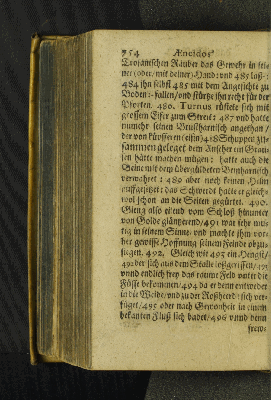 754 Æneidos
Trojanischen Rauber das Gewehr in sei-
ner (oder / mit deiner) Hand: und 485 laß:
484 ihn selbst 485 mit dem Angesicht zu
Boden: fallen / und stürtze ihn recht für der
Pforten. 486. Turnus rüstete sich mit
grossem Eifer zum Streit: 487 und hatte
nunmehr seinen Brustharnisch angethan /
der von küpfferen 488 Schuppen zu-
sammen geleget dem Ansehen ein Grau-
sen hätte machen mügen: hatte auch die
Beine mit dem übergüldeten Beinharnisch
verwahret: 489 aber noch keinen Helm
auffgesetzet: das Schwerdt hatte er gleich-
wol schon an die Seiten gegürtet. 490.
Gieng also eilend vom Schloß hinunter
von Golde gläntzend / 491 war sehr mus-
tig in seinem Sinne / und machte ihm vor-
her gewisse Hoffnung seinem Feinde obzu-
siegen. 492. Gleich wie 493 ein Hengst /
492 der sich aus dem Stalle loßgerissen / 493
und endlich frey das raume Feld unter die
Füsse bekommen / 494 da er denn entweder
in die Weide / und zu der Roßherd: sich ver-
füget / 495 oder nach Gewonheit in einem
bekanten Fluß sich badet / 496 und denn